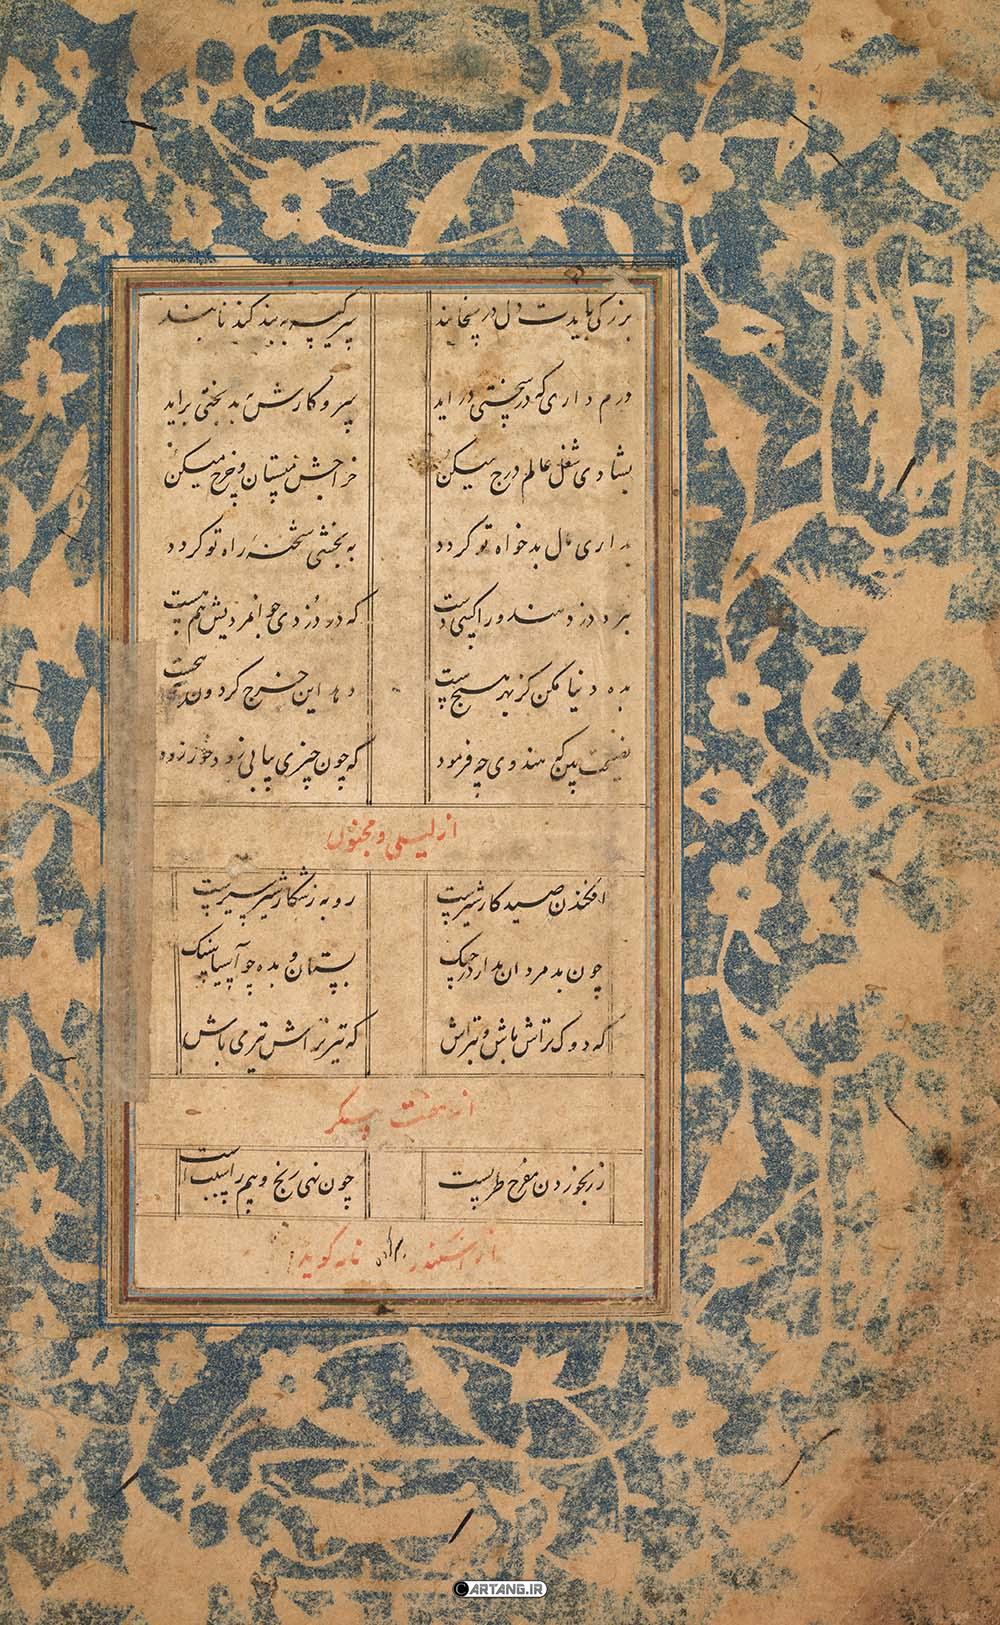 بزرگی بایدت دل در سخا بند سر کیسه به بند گندنا بند
درم داری که در سختی دراید سر و کارش بدبختی براید
بشادی شغل عالم درج میکن خراجش میستان و خرج میکن
بداری مال بدخواه تو گردد ببخشی شحنه راه تو گردد
برد دزد هندو را کسی دست که در دزدی جوانمردیش هم هست
بده دنیا مکن کز بهر هیچست دهد این چرخ گردون
نصیحت بین که هندوی چه فرمود که چون چیزی بیابی زود خور زود
از لیلی و مجنون
افکندن صید کار شیرست روبه ز شکار شیر سیرست
چون بدمردان مدار در چنگ بستان و بده چو آسیا سنگ
که دوک تراش باش و تیر تراش که تیر تراش تیر می باش
از هفت پیکر
زر بخوردن مفرح طربست چون نهی رنج و بیم را سببست
از اسکندر نامه گوید
CARTANG.IR